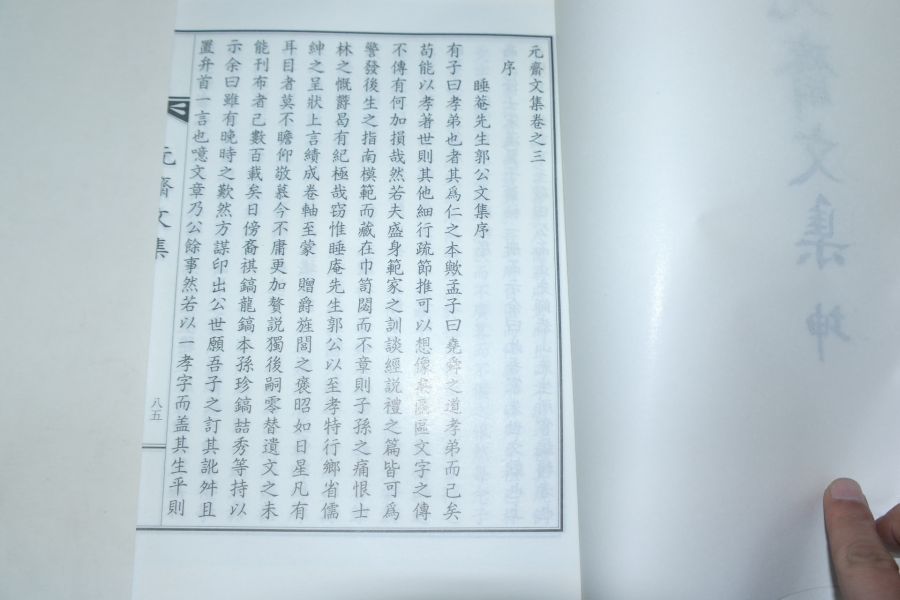 元齋文集卷之三
序
睡菴先生郭公文集序
有子曰孝弟也者其爲仁之本歟孟子曰堯舜之道孝弟而已矣
苟能以孝著世則其他細行疏節推可以想像矣區區文字之傳
不傳有何加損哉然若夫盛身範家之訓談經說禮之篇皆可爲
警發後生之指南模範而藏在巾笥閟而不章則子孫之痛恨士
林之慨欝曷有紀極哉窃惟睡庵先生郭公以至孝特行鄉省儒
紳之呈狀上言績成卷軸至蒙 贈爵旌閭之褒昭如日星凡有
耳目者莫不瞻仰敬慕今不庸更加贅説獨後嗣零替遺文之未
能刊布者己數百載矣日傍裔祺鎬龍鎬本孫珍鎬喆秀等持以
示余曰雖有晚時之歎然方謀印出公世願吾子之訂其訛舛且
置弁首一言也噫文章乃公餘事然若以一孝字而盖其生平則
元齋文集
八五
元齋文集 坤